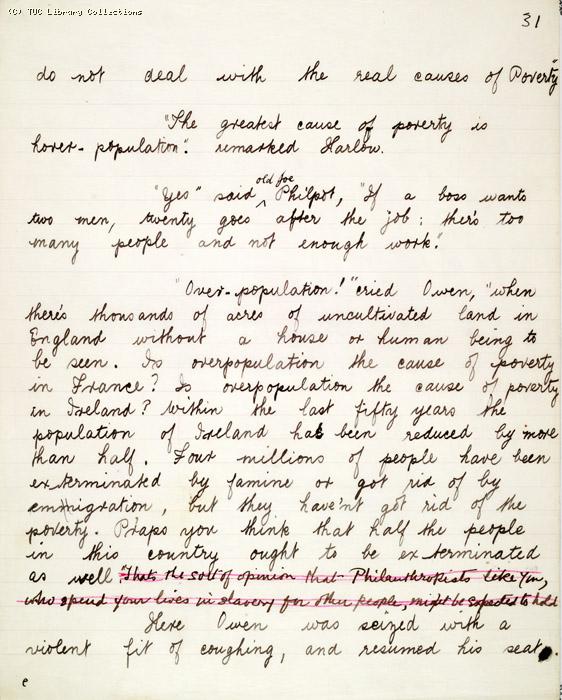 (C) TUC Library Collections
31
do not deal with the real causes of Poverty"
"The greatest cause of poverty is
hover-population". remarked Harlow.
old Joe
"Yes" said Philpot, "If a boss wants
two men, twenty goes after the job: there's too
many people and not enough work."
"Over-population!" cried Owen, "when
there's thousands of acres of uncultivated land in
England without a house or human being to
be seen. Is overpopulation the cause of poverty
in France? Is overpopulation the cause of poverty
in Ireland? Within the last fifty years the
population of Ireland has been reduced by more
than half. Four millions of people have been
exterminated by famine or got rid of by
emmigration, but they have'nt got rid of the
poverty. P'raps you think that half the people
in this country ought to be exterminated
as well "That's the sort of opinion that Philanthropists like You,
who spend your lives in slavery for other people, might be expected to hold
Here Owen was seized with a
violent fit of coughing, and resumed his seat.
e